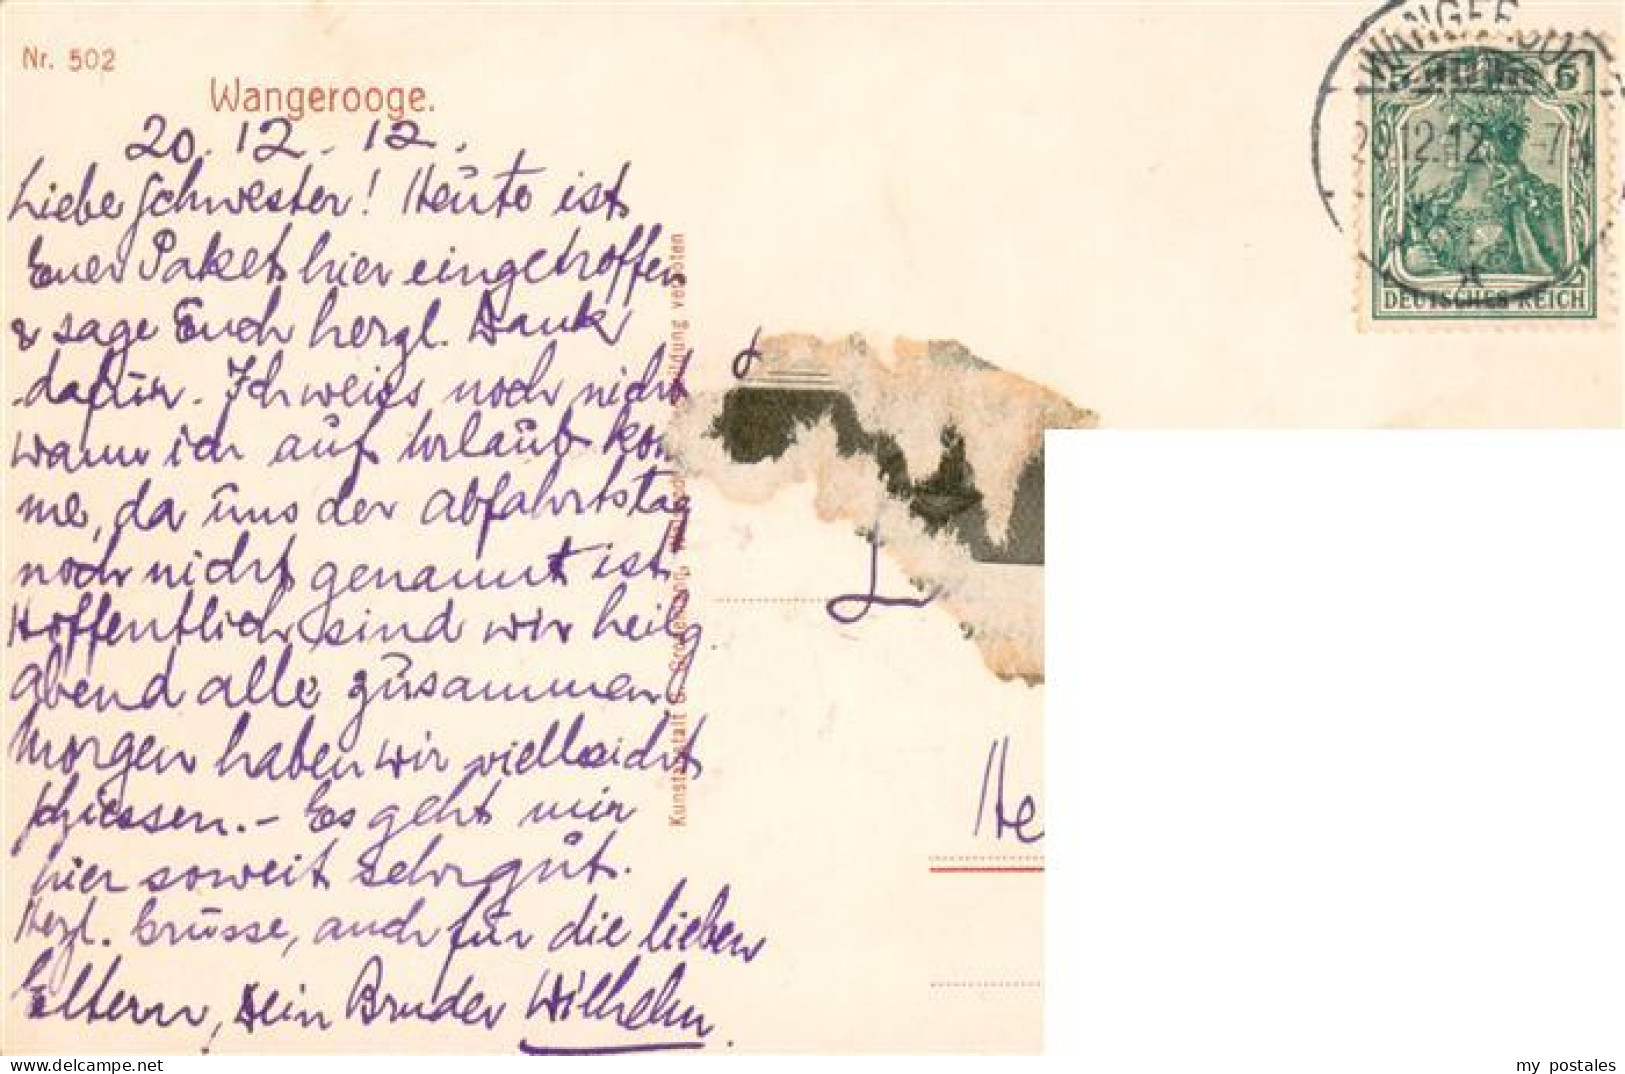 Nr. 502
Wangerooge.
20.12.12.
Liebe Schwester! Heute ist
Euer Paket hier eingetroffen
u sage Euch herzl. Dank
dafür. Ich weiss noch nicht
wann ich auf Urlaub kom
me, da uns der Abfahrtstag
noch nicht genannt ist.
Hoffentlich sind wir heilg
abend alle zusammen.
Morgen haben wir vielleicht
schiessen.- Es geht mir
hier soweit sehr gut.
Herzl. Grüsse, auch für die lieben
Eltern, Dein Bruder Wilhelm.
Kunstanstalt
verboten
He
5 5
20.12.12
DEUTSCHES REICH
my postales